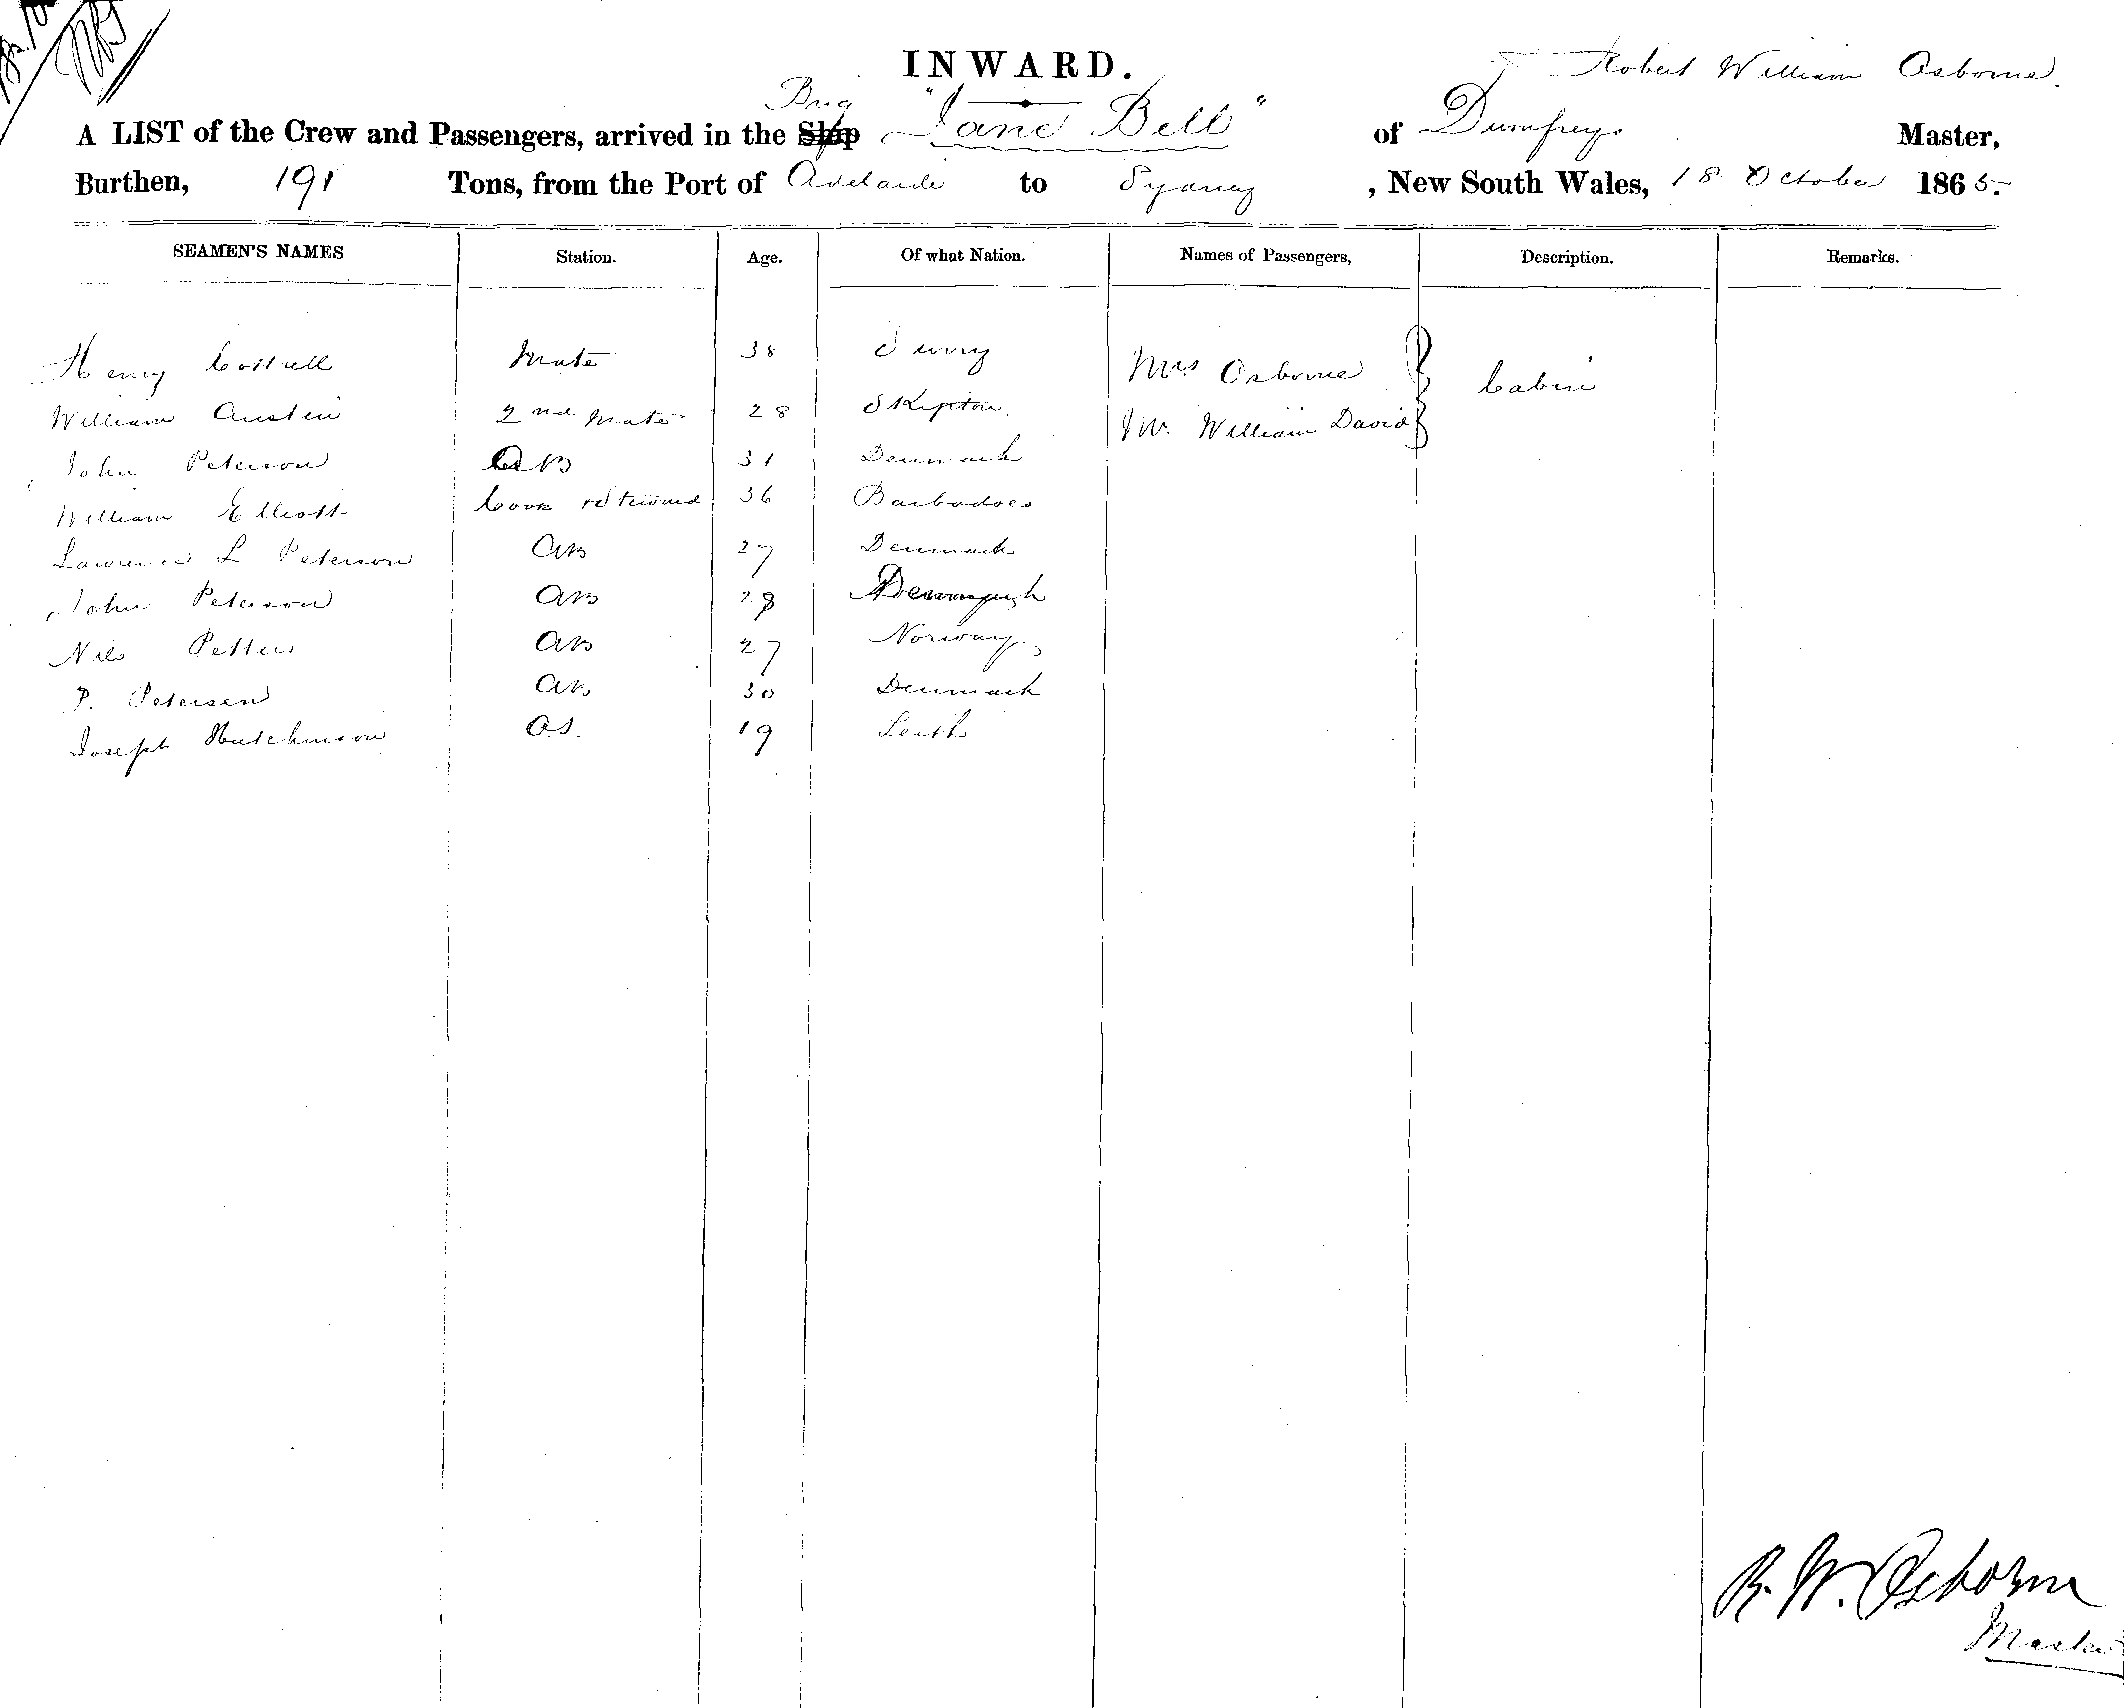 INWARD.
Robert William Osborne.
Brig
A LIST of the Crew and Passengers, arrived in the Ship "Jane Bell" of Dumfreys Master,
Burthen, 191 Tons, from the Port of Adelaide to Sydney, New South Wales, 18 October 1865.
SEAMEN'S NAMES Station. Age. Of what Nation. Names of Passengers, Description. Remarks.
Henry Cottrell Mate 38 Surry Mrs Osborne Cabin
William Austin 2nd Mate 28 Skipton Mr. William David
John Peterson AB 31 Denmark
William Elliott Cook & Steward 36 Barbadoes
Lawrence L Peterson AB 27 Denmark
John Peterson AB 28
Nils Petters AB 27 Norway
P. Petersen AB 30 Denmark
Joseph Hutchinson OS. 19 Leith
R. W. Osborne
Master